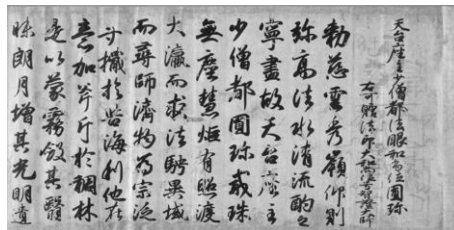 天台座主少僧都法眼和尚位圓珍
右可贈法印大和尚位号智證大師
勅慈雲秀嶺仰則
珎高法水清流酌之
寧盡故天台座主
少僧都圓珎戒珠
無塵慧炬有照渡
大瀛而求法騁異域
而尋師濟物為宗泛
舟檝於苦海利他在
意加斧斤於稠林
遂以蒙霧斂其翳
朦朗月增其光明遺